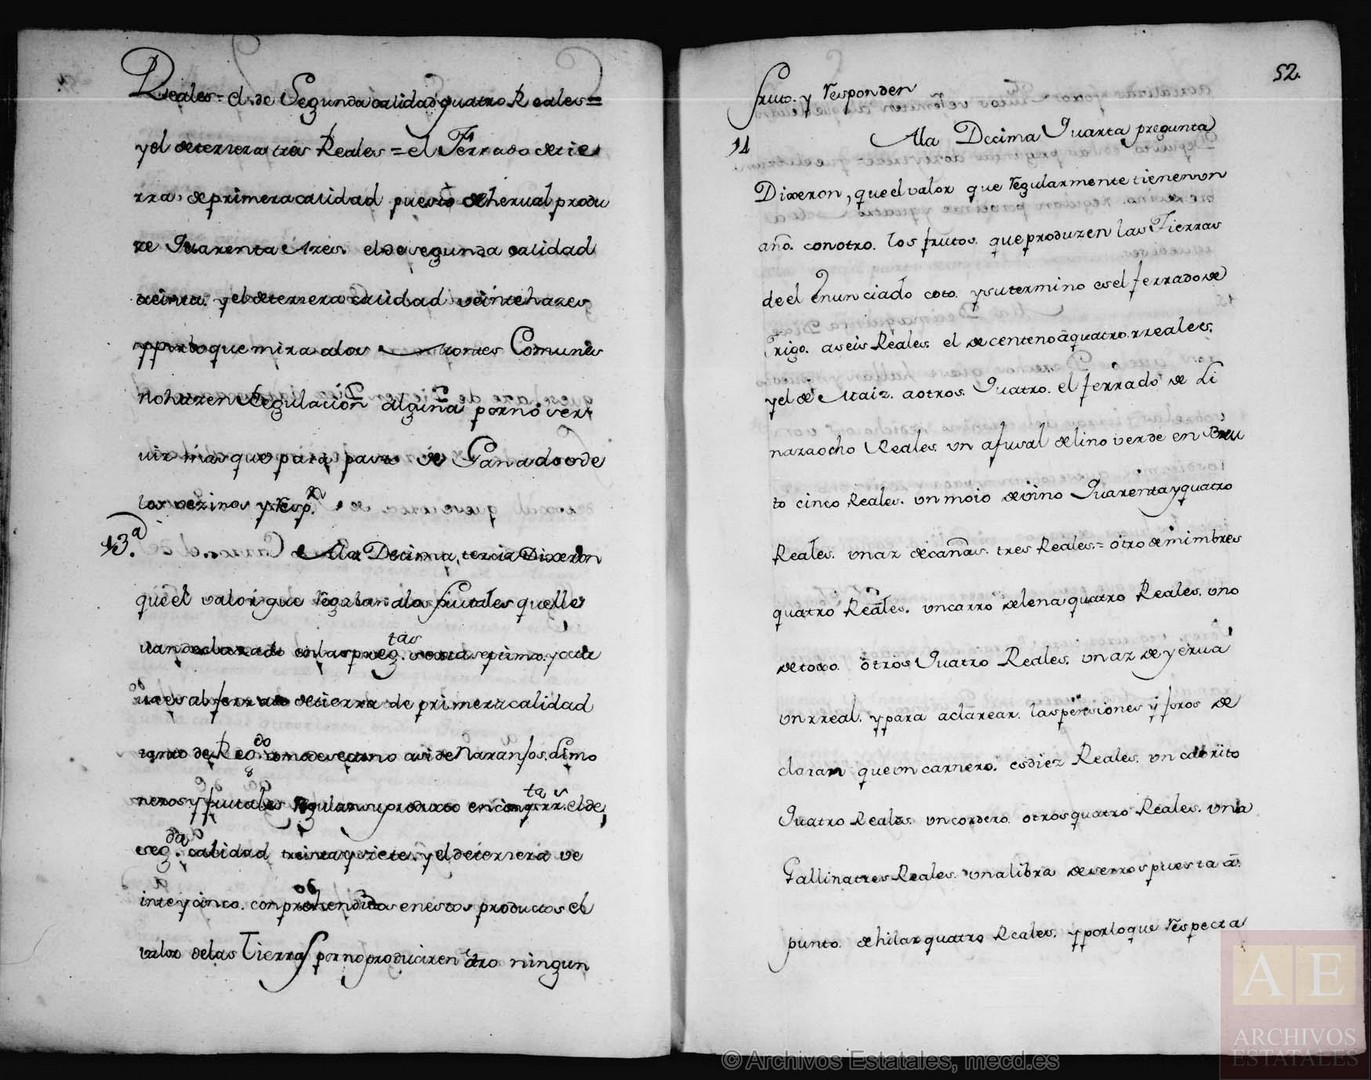 Reales = el de Segunda calidad quatro Reales =
y el de terzera tres Reales = el Ferrado de tie
rra, de primera calidad puesto de herval produ
ze Quarenta Reales el de segunda calidad
treinta, y el de terzera calidad veinte haze
y por lo que mira a los montes Comunes
no hazen Regulazion alguna por no ser
vir mas que para pasto de Ganados de
los vezinos y Resp.n
13.a A la Dezima, terzia Dixeron
que el valor que regulan a los frutales que lle
van declarado en las preg.tas sexta septima, y octa
va es al ferrado de tierra de primera calidad
tanto de Reg.do como de secano asi de Naranjos, Limo
neros y frutales regulan su producto en cinq.ta r.s el de
seg.da calidad treinta y siete, y el de terzera ve
inte y cinco, comprehendidos en estos productos el
valor de las Tierras por no produciren otro ningun
52.
fruto. y responden
14 A la Decima Quarta pregunta
Dixeron, que el valor que regularmente tienen un
año con otro los frutos que produzen las Tierras
de el Enunciado coto, y su termino es el ferrado de
Trigo a seis Reales, el de centeno a quatro rreales,
y el de Maiz, a otros Quatro, el ferrado de Li
naza ocho Reales, un afusal de lino verde en Bru
to cinco Reales, un moio de vino Quarenta y quatro
Reales, un az de cañas, tres Reales = otro de mimbres
quatro Reales, un carro de lena quatro Reales, uno
de toxo, otros Quatro Reales, un az de yerva
un rreal, y para aclarear, las pensiones y foros de
claran que un carnero, es diez Reales, un cabrito
Quatro Reales, un cordero, otros quatro Reales, una
Gallina tres Reales, una libra de serros puesta a
punto, de hilar quatro Reales, y por lo que respecta
AE
ARCHIVOS
ESTATALES
© Archivos Estatales, mecd.es